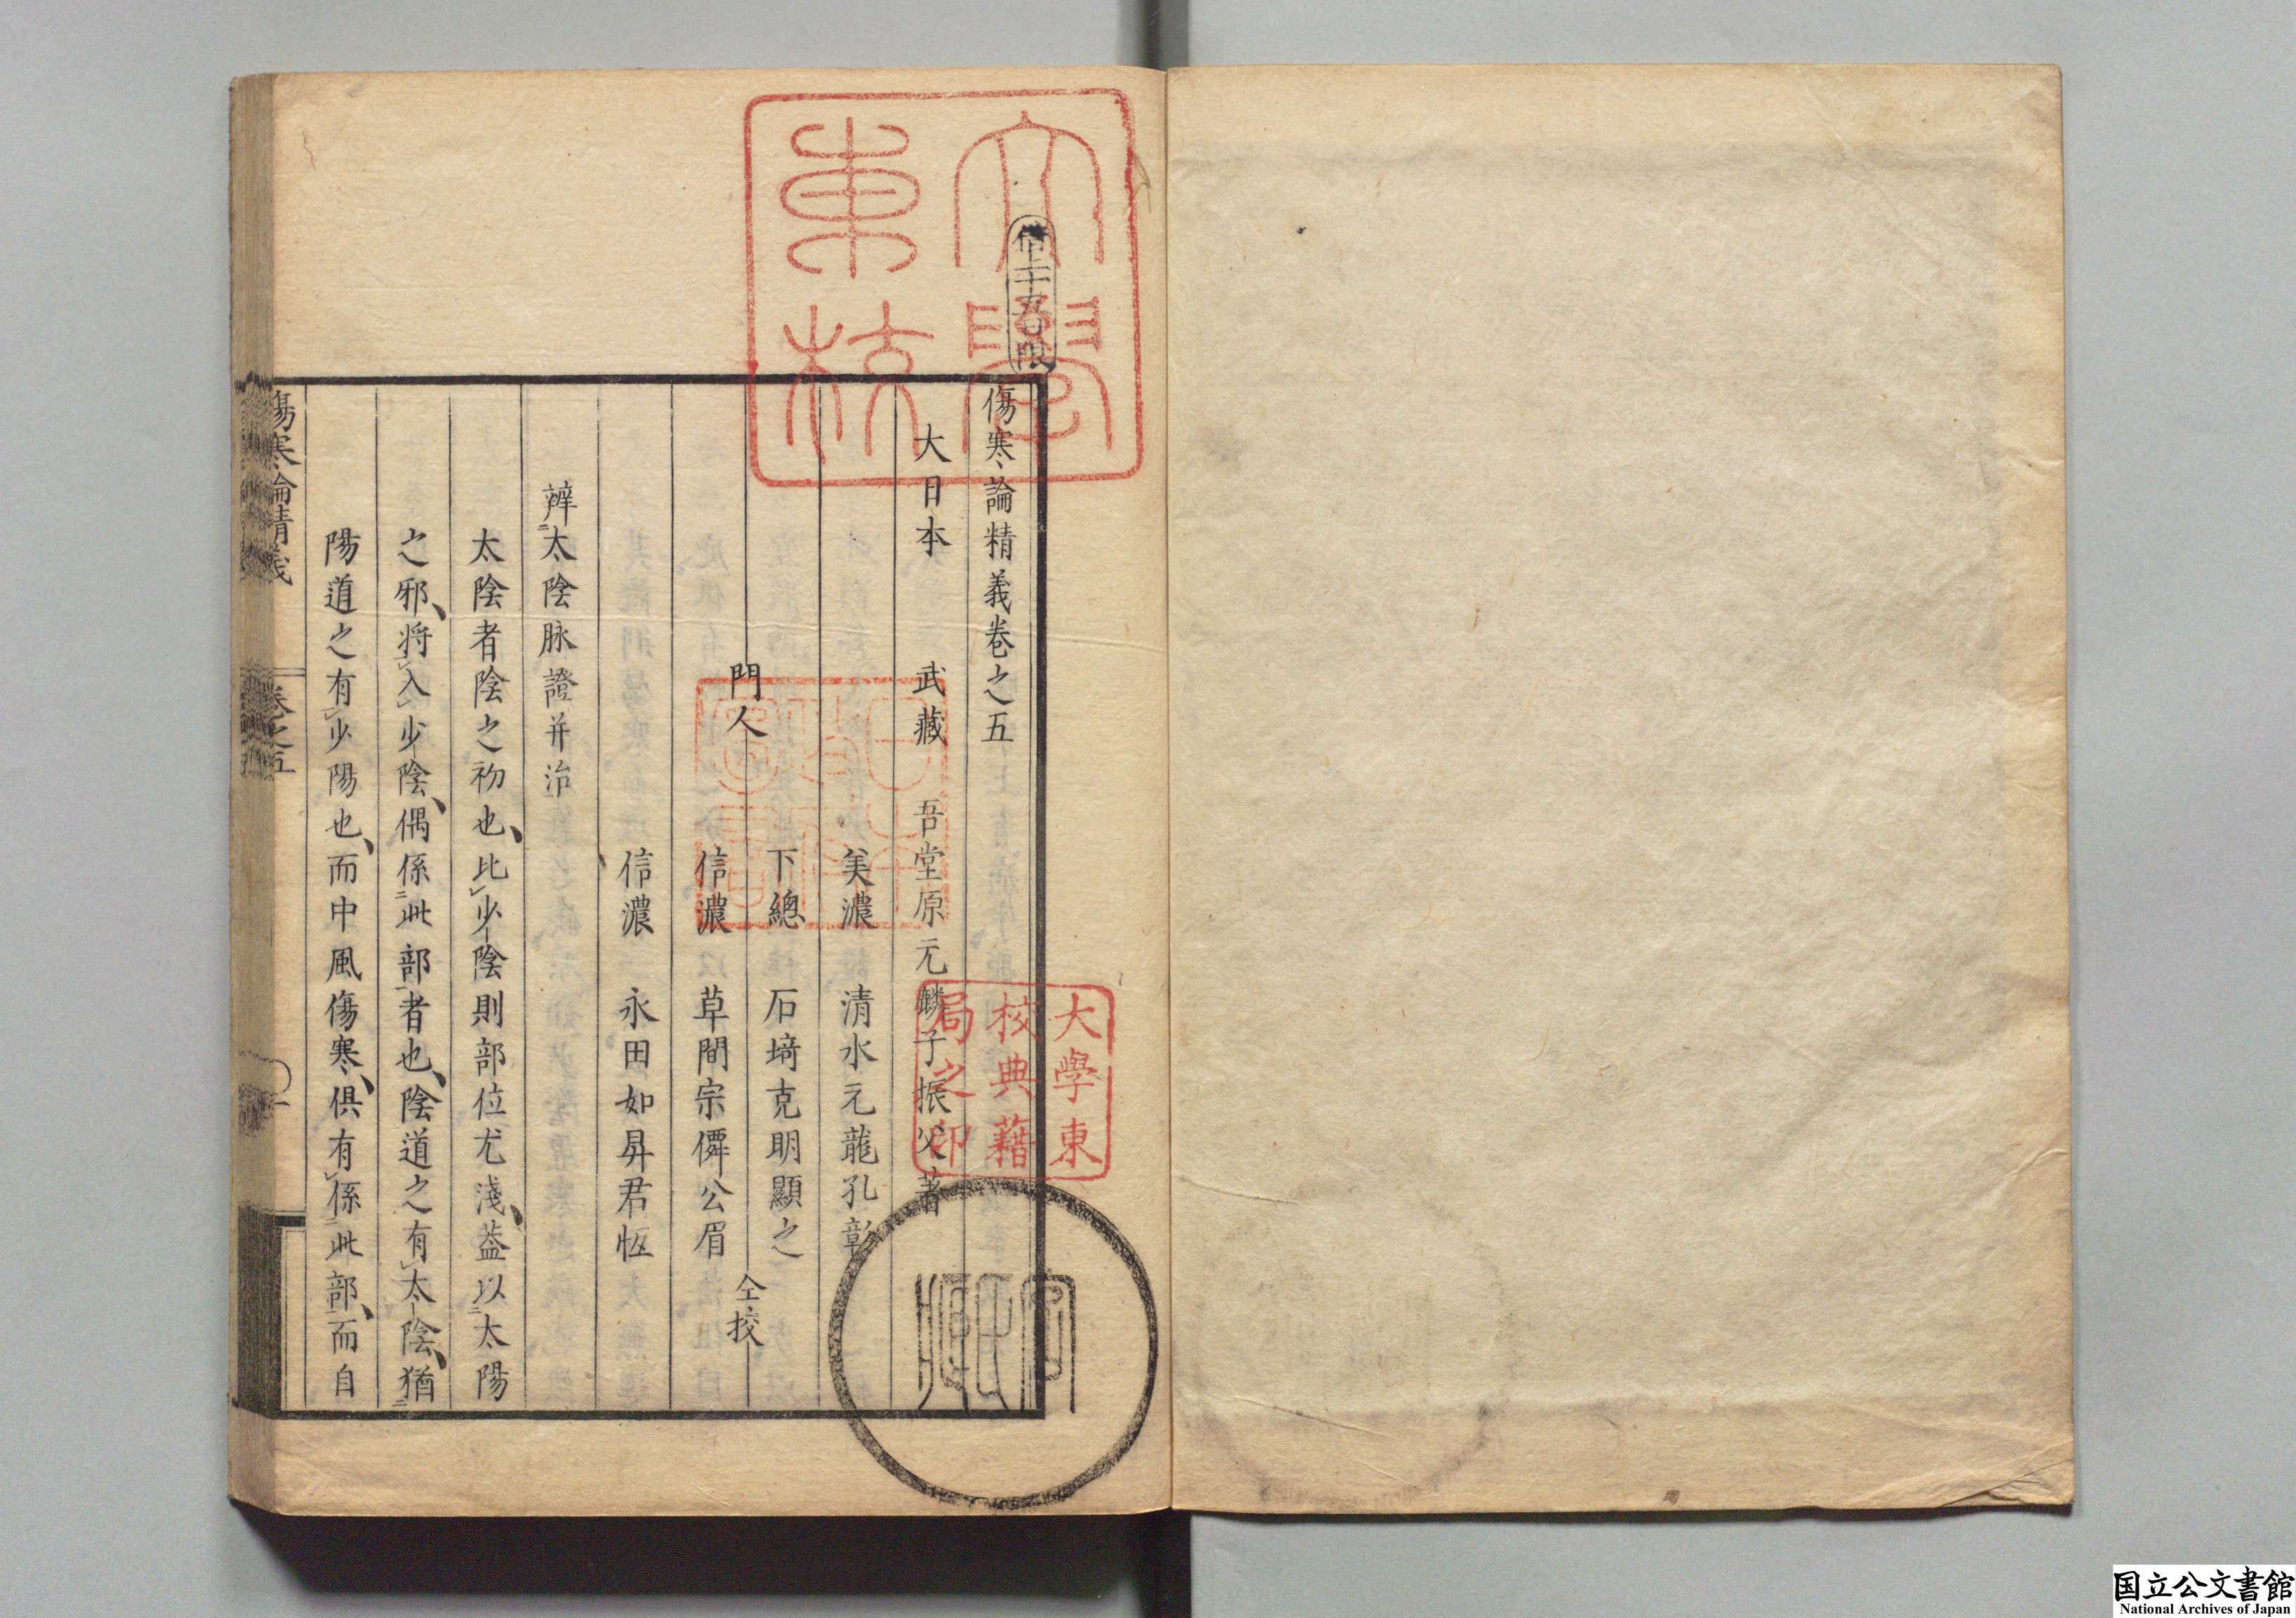 傷寒論精義卷之五
大日本 武藏 吾堂原元麟子振父著
美濃 清水元龍孔彰
下總 石埼克明顯之
門人
信濃 草間宗僲公眉
仝挍
信濃 永田如昇君恆
辨太陰脉證并治
太陰者陰之初也、比少陰則部位尤淺、蓋以太陽
之邪、将入少陰、偶係此部者也、陰道之有太陰、猶
陽道之有少陽也、而中風傷寒、俱有係此部、而自
傷寒論精義 卷之五 一
大學東校
大學東
校典藉
局之印
国立公文書館
National Archives of Japan